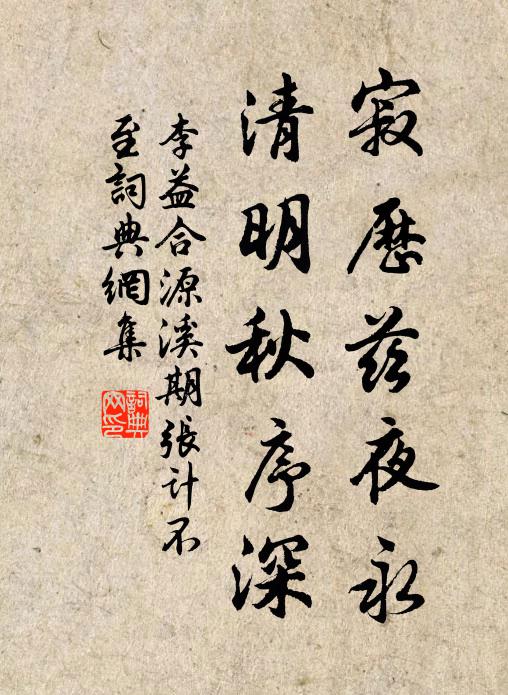 寂歷茲夜永
清明秋序深
李益合源溪期張計不
至詞典網集
詞典网印